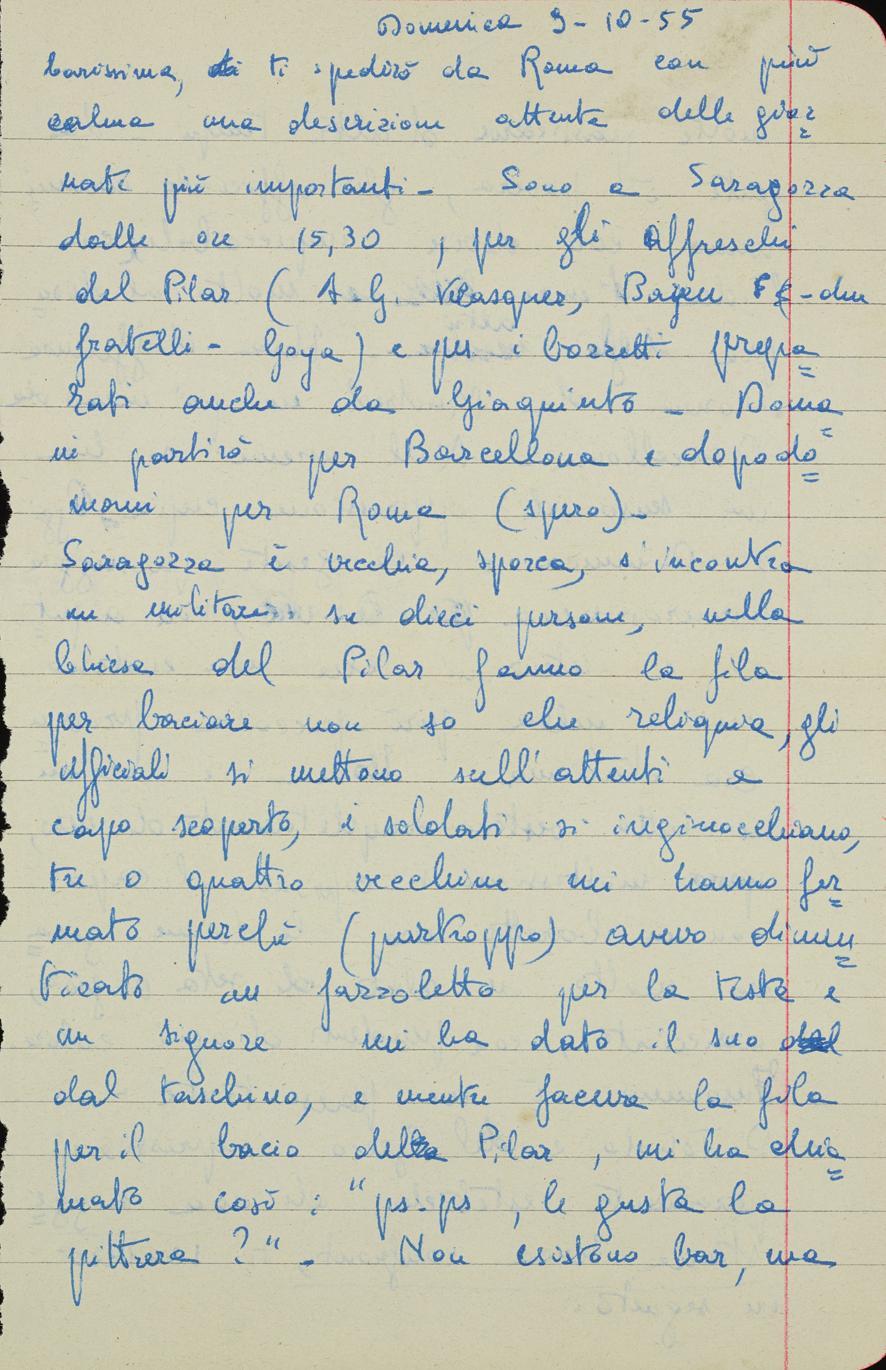 Domenica 9-10-55
Carissima, ti spedirò da Roma con più
calma una descrizione attenta delle gior
nate più importanti - Sono a Saragozza
dalle ore 15,30, per gli affreschi
del Pilar (A. G. Velasquez, Bayeu - due
fratelli - Goya) e per i bozzetti prepa
rati anche da Giaquinto - Doma
ni partirò per Barcellona e dopodo
mani per Roma (spero) -
Saragozza è vecchia, sporca, s'incontra
un militare su dieci persone, nella
Chiesa del Pilar fanno la fila
per baciare non so che reliquia, gli
ufficiali si mettono sull'attenti e
capo scoperto, i soldati si inginocchiano,
tre o quattro vecchine mi hanno fer
mato perché (purtroppo) avevo dimen
ticato un fazzoletto per la testa e
un signore mi ha dato il suo
dal taschino, e mentre faceva la fila
per il bacio della Pilar, mi ha chia
mato così: "ps-ps, le gusta la
pittrera?" - Non esistono bar, ma